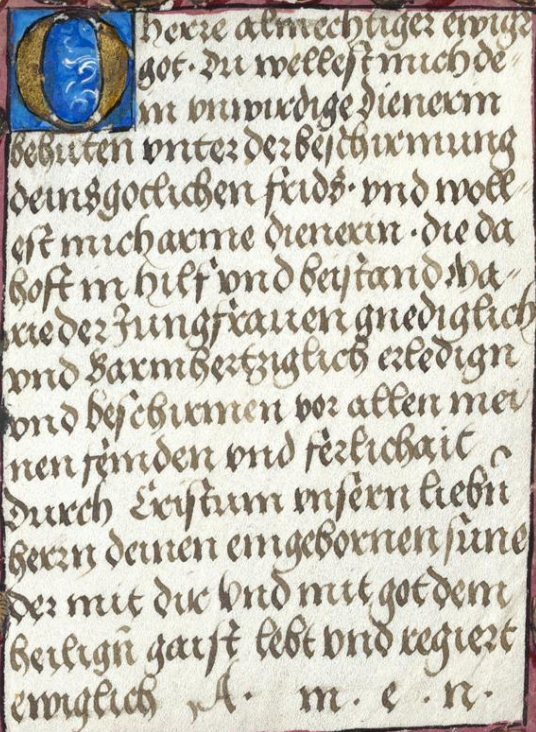 O herre almechtiger ewiger
got · du wellest mich de-
in vnwirdige dienerin
behüten vnter der beschirmung
deins gotlichen frids · vnd woll-
est mich arme dienerin · die da
hoft in hilf vnd beistand Ma-
rie der Jungfrauen gnediglich
vnd Barmhertziglich erledign
vnd beschirmen vor allen mei
nen feinden vnd ferlichait
durch Cristum vnsern liebn̄
herrn deinen eingebornen süne
der mit dir vnd mit got dem
heilign̄ gaist lebt vnd regiert
ewiglich A · m · e · n ·